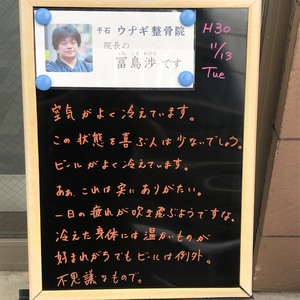 千石 ウナギ整骨院
院長の
冨島渉です
H30
11/13
Tue
空気がよく冷えています。
この状態を喜ぶ人は少ないでしょう。
ビールがよく冷えています。
ああ、これは実にありがたい。
一日の疲れが吹き飛ぶようですな。
冷えた身体には温かいものが
好まれがちでもビールは例外。
不思議なもので。